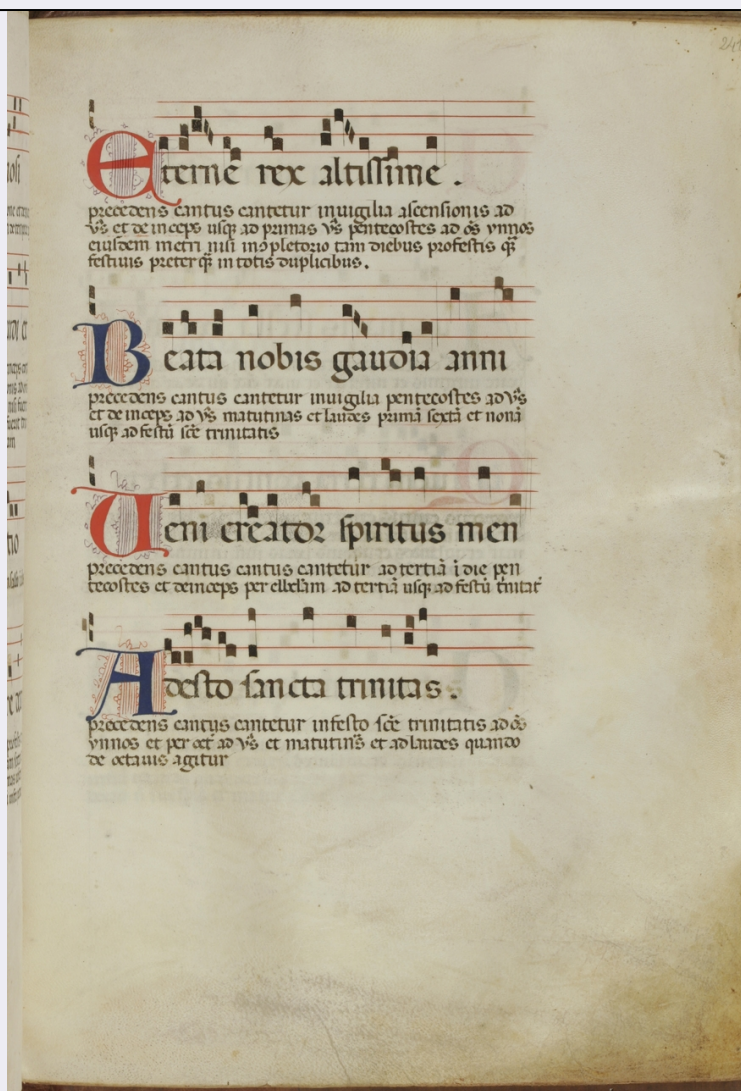 Eterne rex altissime.
precedens cantus cantetur inuigilia ascensionis ad
vs̄ et deinceps usq̨ ad primas vs̄ pentecostes ad oēs ynnos
eiusdem metri nisi incōpletorio tam diebus profestis q̄
festiuis preter q̄ in totis duplicibus.
Beata nobis gaudia anni
precedens cantus cantetur inuigilia pentecostes ad vs̄
et deinceps ad vs̄ matutinas et laudes primā sextā et nonā
usq̨ ad festū scē trinitatis
Ueni creator spiritus men
precedens cantus cantus cantetur ad tertiā ī die pen
tecostes et deinceps per ebdam̄ ad tertiā usq̨ ad festū t̄nitat̄
Adesto sancta trinitas.
precedens cantus cantetur infesto scē trinitatis ad oēs
ynnos et per oct̄ ad vs̄ et matutin̄s et ad laudes quando
de octauis agitur